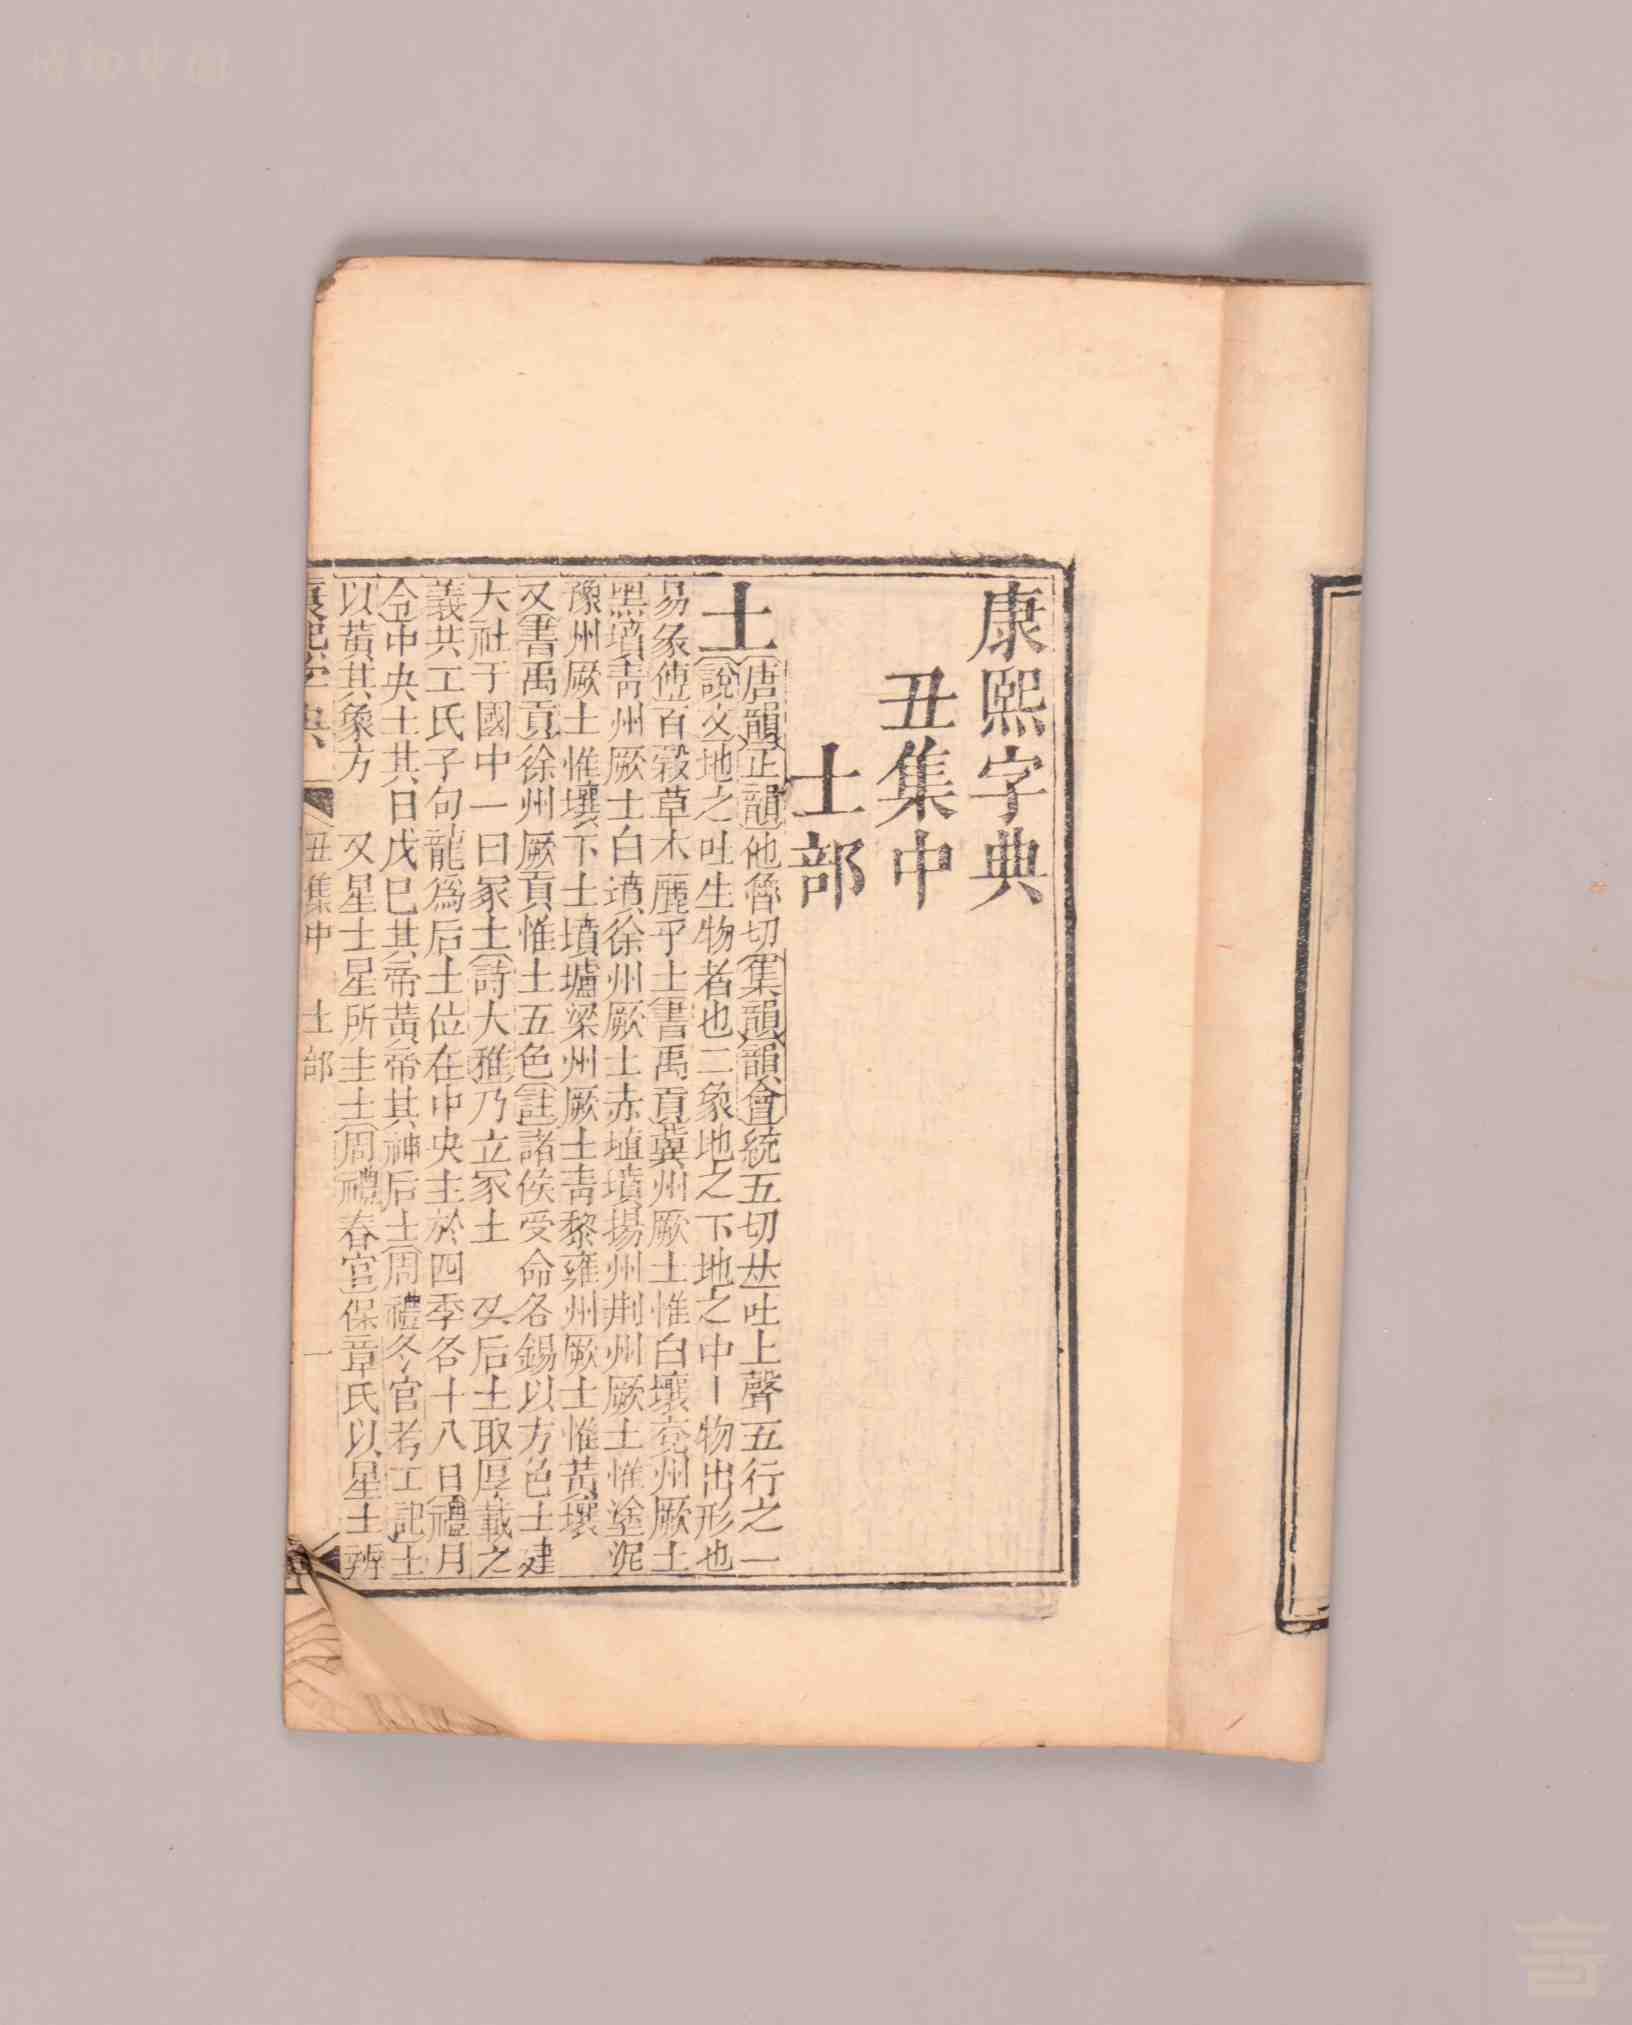 康熙字典
丑集中
土部
土
唐韻正韻他魯切集韻韻會統五切𠀤吐上聲五行之一
說文地之吐生物者也二象地之下地之中丨物出形也
易彖傳百穀草木麗乎土書禹貢冀州厥土惟白壤兗州厥土
黑墳靑州厥土白墳徐州厥土赤埴墳揚州荆州厥土惟塗泥
豫州厥土惟壤下土墳壚梁州厥土靑黎雍州厥土惟黃壤
又書禹貢徐州厥貢惟土五色註諸侯受命各錫以方色土建
大社于國中一曰冢土詩大雅乃立冢土 又后土取厚載之
義共工氏子句龍爲后土位在中央主於四季各十八日禮月
令中央土其日戊巳其帝黃帝其神后土周禮冬官考工記土
以黃其象方 又星土星所主土周禮春官保章氏以星土辨
康熙字典 丑集中 土部 一